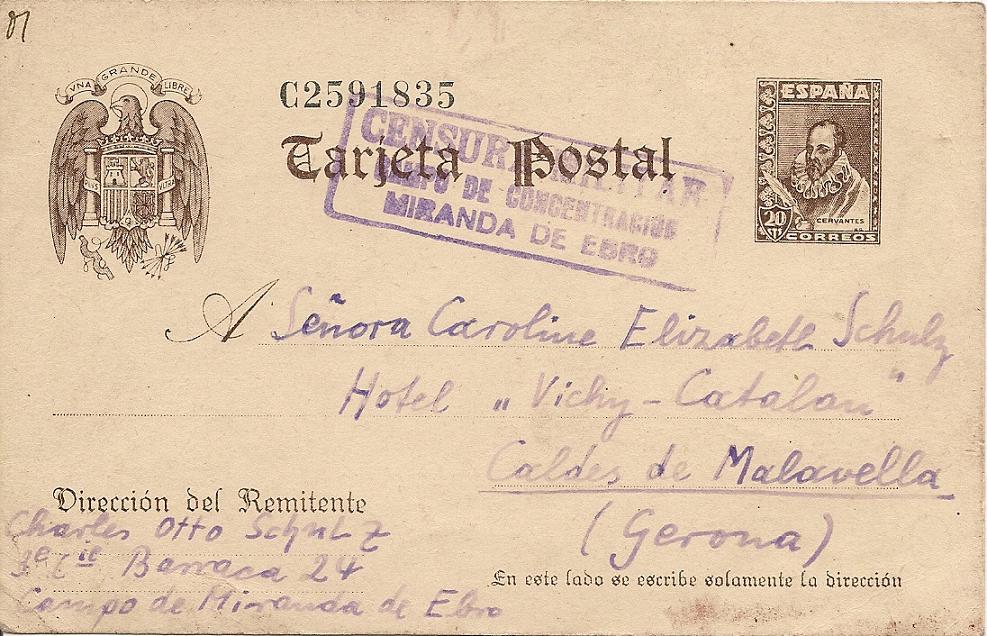 UNA GRANDE LIBRE
PLUS ULTRA
C2591835
Tarjeta Postal
CENSURA MILITAR
CAMPO DE CONCENTRACION
MIRANDA DE EBRO
ESPAÑA
CERVANTES
20
CORREOS
A Señora Caroline Elizabeth Schulz
Hotel „Vichy-Catalan"
Caldes de Malavella
(Gerona)
Dirección del Remitente
Charles Otto Schulz
3e Cie Barraca 24
Campo de Miranda de Ebro
En este lado se escribe solamente la dirección